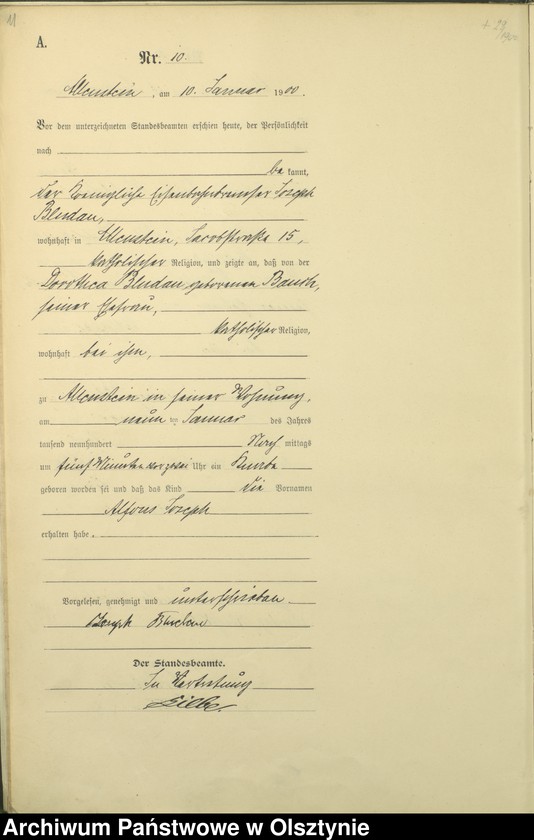 11
+ 23
1900
A.
Nr. 10.
Allenstein, am 10. Januar 1900.
Vor dem unterzeichneten Standesbeamten erschien heute, der Persönlichkeit
nach
bekannt,
der Koenigliche Eisenbahnbremser Joseph
Bludau,
wohnhaft in Allenstein, Jacobstraße 15,
katholischer Religion, und zeigte an, daß von der
Dorothea Bludau, geborenen
seiner Ehefrau,
katholischer Religion,
wohnhaft bei ihm,
zu Allenstein in seiner Wohnung,
am neun ten Januar des Jahres
tausend neunhundert Nachmittags
um fünf Minuten vor zwei Uhr ein Knabe
geboren worden sei und daß das Kind die Vornamen
Alfons Joseph
erhalten habe.
Vorgelesen, genehmigt und unterschrieben
Joseph Bludau
Der Standesbeamte.
In Vertretung
Archiwum Państwowe w Olsztynie